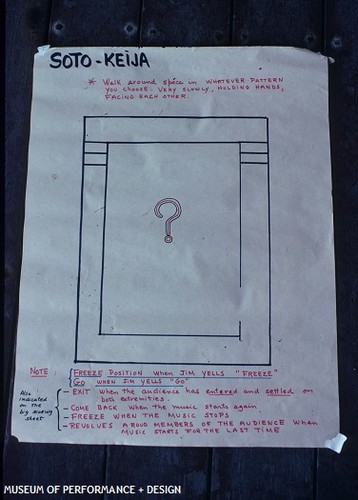 SOTO-KEIJA
* Walk around space in WHATEVER PATTERN
YOU CHOOSE. VERY SLOWLY, HOLDING HANDS,
FACING EACH OTHER.
?
NOTE
FREEZE POSITION when JIM YELLS "FREEZE"
GO WHEN JIM YELLS "GO"
Also
indicated
on the
big
sheet
- EXIT when the audience has entered and settled on
both extremities.
- COME BACK when the music starts again
- FREEZE WHEN THE MUSIC STOPS
- REVOLVES AROUD MEMBERS OF THE AUDIENCE when
MUSIC STARTS FOR THE LAST TIME
MUSEUM OF PERFORMANCE + DESIGN